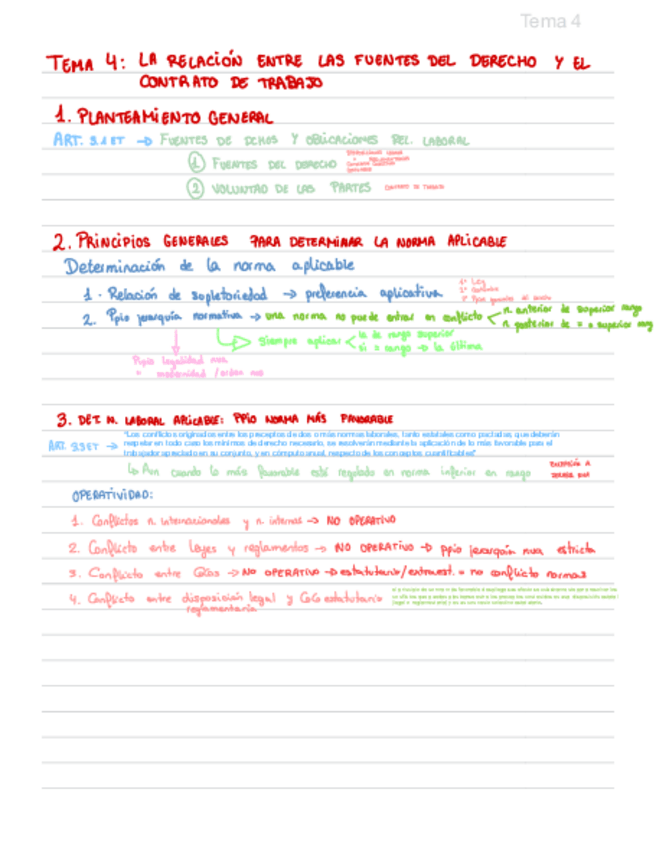 Tema 4
TEMA 4: LA RELACIÓN ENTRE LAS FUENTES DEL DERECHO Y EL
CONTRATO DE TRABAJO
1. PLANTEAMIENTO GENERAL
ART. 3.1 ET → FUENTES DE DCHOS Y OBLIGACIONES REL. LABORAL
① FUENTES DEL DERECHO
② VOLUNTAD DE LAS PARTES CONTRATO DE TRABAJO
2. PRINCIPIOS GENERALES PARA DETERMINAR LA NORMA APLICABLE
Determinación de la norma aplicable
1º Ley
1. Relación de supletoriedad → preferencia aplicativa
2. Ppio jerarquía normativa → una norma no puede entrar en conflicto < n. anterior de superior rango
n. posterior de = o superior rang
siempre aplicar < la de rango superior
si = rango → la última
Ppio legalidad nva
" modernidad / orden nvo
3. DET. N. LABORAL APLICABLE: PPIO NORMA MÁS FAVORABLE
"Los conflictos originados entre los preceptos de dos o más normas laborales, tanto estatales como pactadas, que deberán
ART. 3.3 ET → respetar en todo caso los mínimos de derecho necesario, se resolverán mediante la aplicación de lo más favorable para el
trabajador apreciado en su conjunto, y en cómputo anual, respecto de los conceptos cuantificables"
↳ Aun cuando lo más favorable esté regulado en norma inferior en rango EXCEPCIÓN A
OPERATIVIDAD:
1. Conflictos n. internacionales y n. internas → NO OPERATIVO
2. Conflicto entre leyes y reglamentos → NO OPERATIVO → ppio jerarquía nva estricta
3. Conflicto entre CCos → NO OPERATIVO → estatutario/extraest. = no conflicto normas
4. Conflicto entre disposición legal y CCo estatutario
reglamentaria